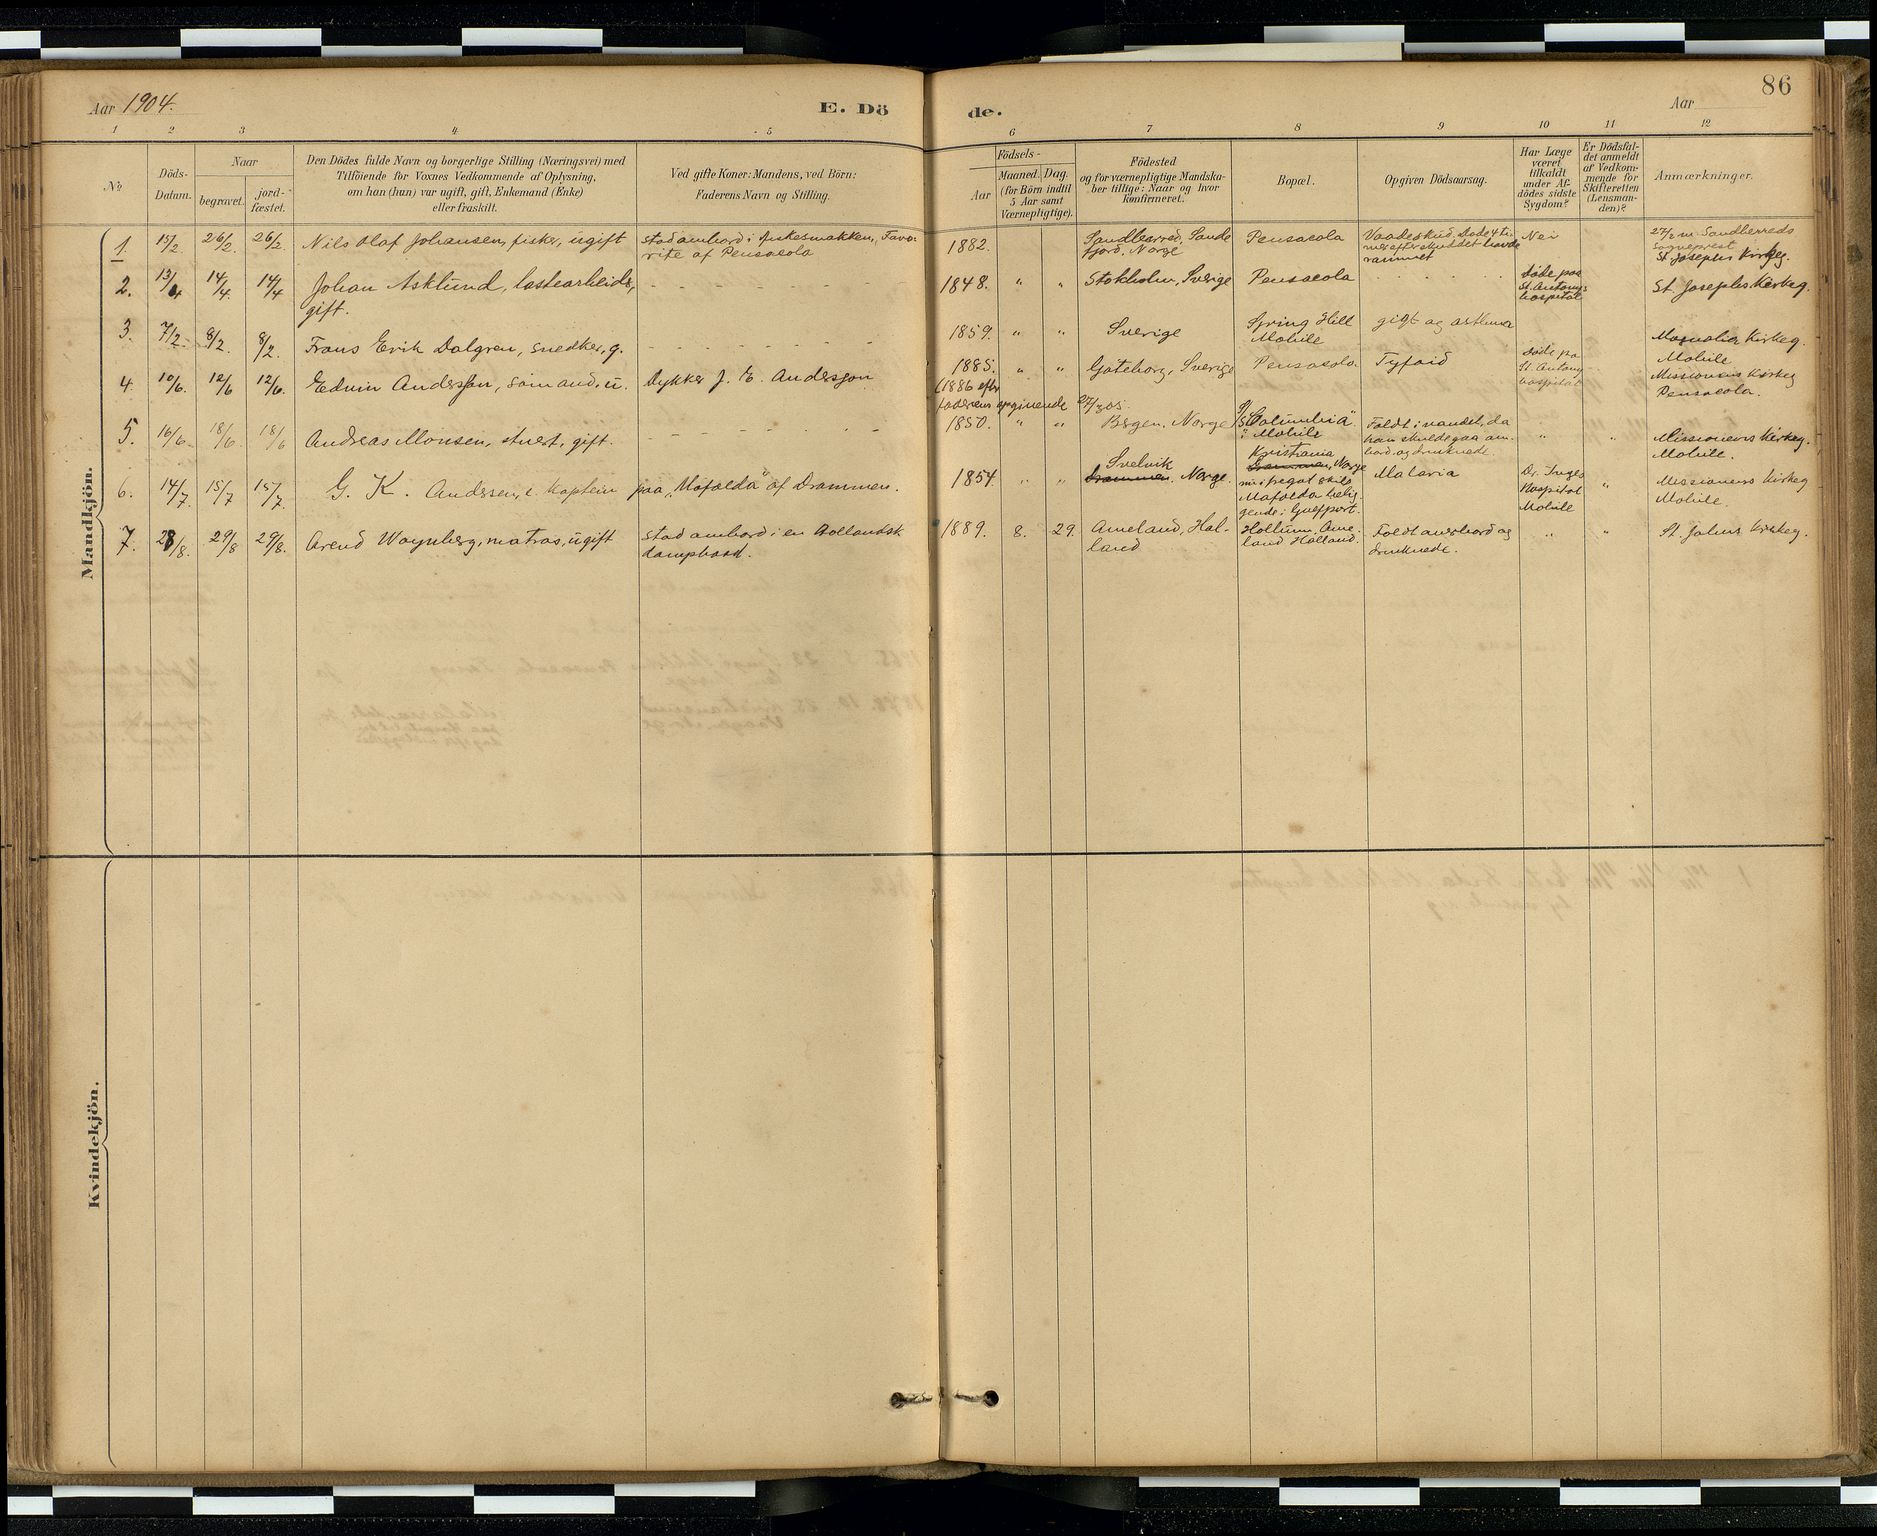 Aar 1904.
E. Döde.
Aar
86
1 2 3 4 5 6 7 8 9 10 11 12
No
Döds-Datum.
Naar
begravet.
jordfæstet.
Den Dödes fulde Navn og borgerlige Stilling (Næringsvei) med
Tilföiende for Voxnes Vedkommende af Oplysning,
om han (hun) var ugift, gift, Enkemand (Enke)
eller fraskilt.
Ved gifte Koner: Mandens, ved Börn:
Faderens Navn og Stilling.
Födsels-
Aar
Maaned. Dag.
(for Börn indtil
5 Aar samt
Værnepligtige).
Födested
og for værnepligtige Mandska-
ber tillige: Naar og hvor
konfirmeret.
Bopæl.
Opgiven Dödsaarsag.
Har Læge
været
tilkaldt
under Af-
dödes sidste
Sygdom?
Er Dödsfal-
det anmeldt
af Vedkom-
mende for
Skifteretten
(Lensman-
den)?
Anmærkninger.
Mandkjön.
1. 15/2 26/2 26/2 Nils Olaf Johansen, fisker, ugift
stod ambord i fiskesmakken, Favo-
rite af Pensacola
1882.
Sandherred, Sande
fjord, Norge
Pensacola
Vaadeskud. Døde 4 ti-
mer efter skuddet havde
rammet
Nei
27/2 m. Sandherreds
Sogneprest
St. Josephs Kirkeg.
2. 13/4 14/4 14/4 Johan Asklund, lastearbeider,
gift.
- - - - - - -
1848. " "
Stokholm, Sverige
Pensacola
. . . .
døde paa
St. Antonys
hospital
St. Josephs Kirkeg.
3. 7/2 8/2 8/2 Frans Erik Dalgren, snedker, g.
- - - - - - -
1859. " "
Sverige
Spring Hill
Mobile
gigt og asthma
Magnolia Kirkeg.
Mobile
4. 10/6. 12/6 12/6. Edvin Andersson, sömand, u.
Dykker J. E. Andersson
1885. " "
(1886 efter
faderens opgivende 27/3 05.
Gøteborg, Sverige
Pensacola
Tyfoid
døde pa
St. Antony
hospital
Missionens Kirkeg
Pensacola.
5. 16/6. 18/6 18/6 Andreas Monsen, stuert, gift.
- - - - - -
1850. " "
Bergen, Norge
S/S "Columbia"
i Mobile
Faldt i vandet, da
han skulde gaa om-
bord, og druknede.
" "
Missionens Kirkeg.
Mobile.
6. 14/7 15/7 15/7 G. K. Anderssen, e. Kaptein
paa "Mafalda" af Drammen.
1854. " "
Svelvik
Drammen, Norge.
Kristiania
Drammen, Norge
Mafalda belig-
gende i Gulfport.
Malaria
Dr. Inges
Hospital
Mobile
"
Missionens Kirkeg
Mobile.
7. 28/8. 29/8 29/8. Arend Waynberg, matros, ugift
stod ambord i en Hollandsk
dampbaad.
1889. 8. 29.
Ameland, Hol-
land
Hollum, Ame-
land Holland.
Faldt overbord og
druknede.
" "
St. Johns Kirkeg.
Kvindekjön.